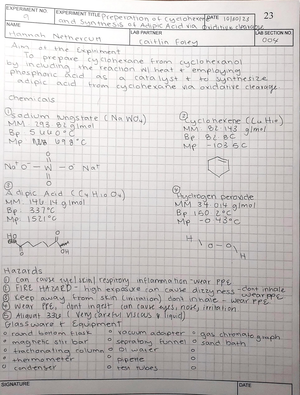 EXPERIMENT NO. 9
EXPERIMENT TITLE Preperation of Cyclohexene
and Synthesis of Adipic Acid via oxidative cleavage
DATE 10/20/23
23
NAME
Hannah Nethercutt
LAB PARTNER
Caitlin Foley
LAB SECTION NO.
004
Aim of the Expiriment
To prepare cyclohexane from cyclohexanol
by including the reaction w/ heat + employing
phosphoric acid as a catalyst + to synthesize
adipic acid from cyclohexane via oxidative cleavage
Chemicals
① Sodium tungstate (Na WO4)
MM 293.82 g/mol
Bp 5,660°C
Mp 698°C
Na+ O- — W — O- Na+
② Cyclohexene (C6H10)
MM 82.143 g/mol
Bp 82.8C
Mp -103.5C
③ Adipic Acid (C6H10O4)
MM 146.14 g/mol
Bp 337°C
Mp 152.1°C
④ Hydrogen peroxide
MM 34.014 g/mol
Bp 150.2°C
Mp -0.43°C
H O-O H
Hazards
① Can cause eye/skin/respitory inflammation - wear PPE
② FIRE HAZARD - high exposure can cause dizzyness - dont inhale wear PPE
③ Keep away from skin (irritation) dont inhale - wear PPE
④ Wear PPE, dont ingest can cause eyes, nose, irritation
⑤ Aliquat 336 (very careful viscous liquid)
Glassware + Equipment
○ round bottom flask
○ vacuum adapter
○ gas chromatograph
○ magnetic stir bar
○ sepratory funnel
○ sand bath
○ fractionating column
○ thermometer
○ pipette
○ condenser
○ test tubes
SIGNATURE
DATE